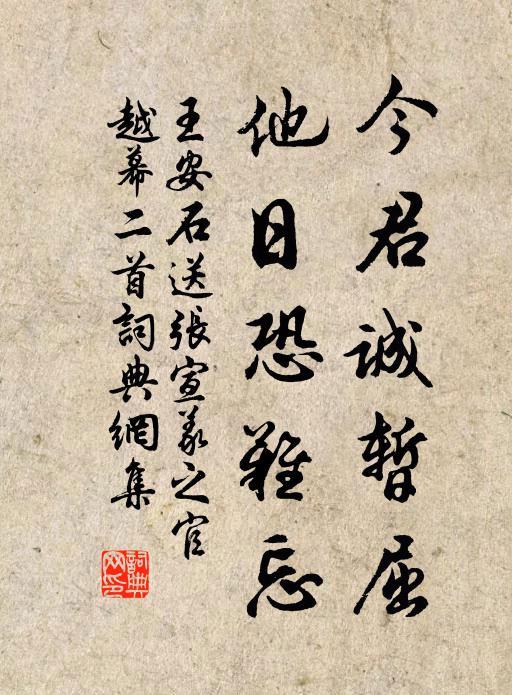 今君誠暫屈
他日恐難忘
王安石送張宣義之官
越幕二首詞典網集
詞典網印